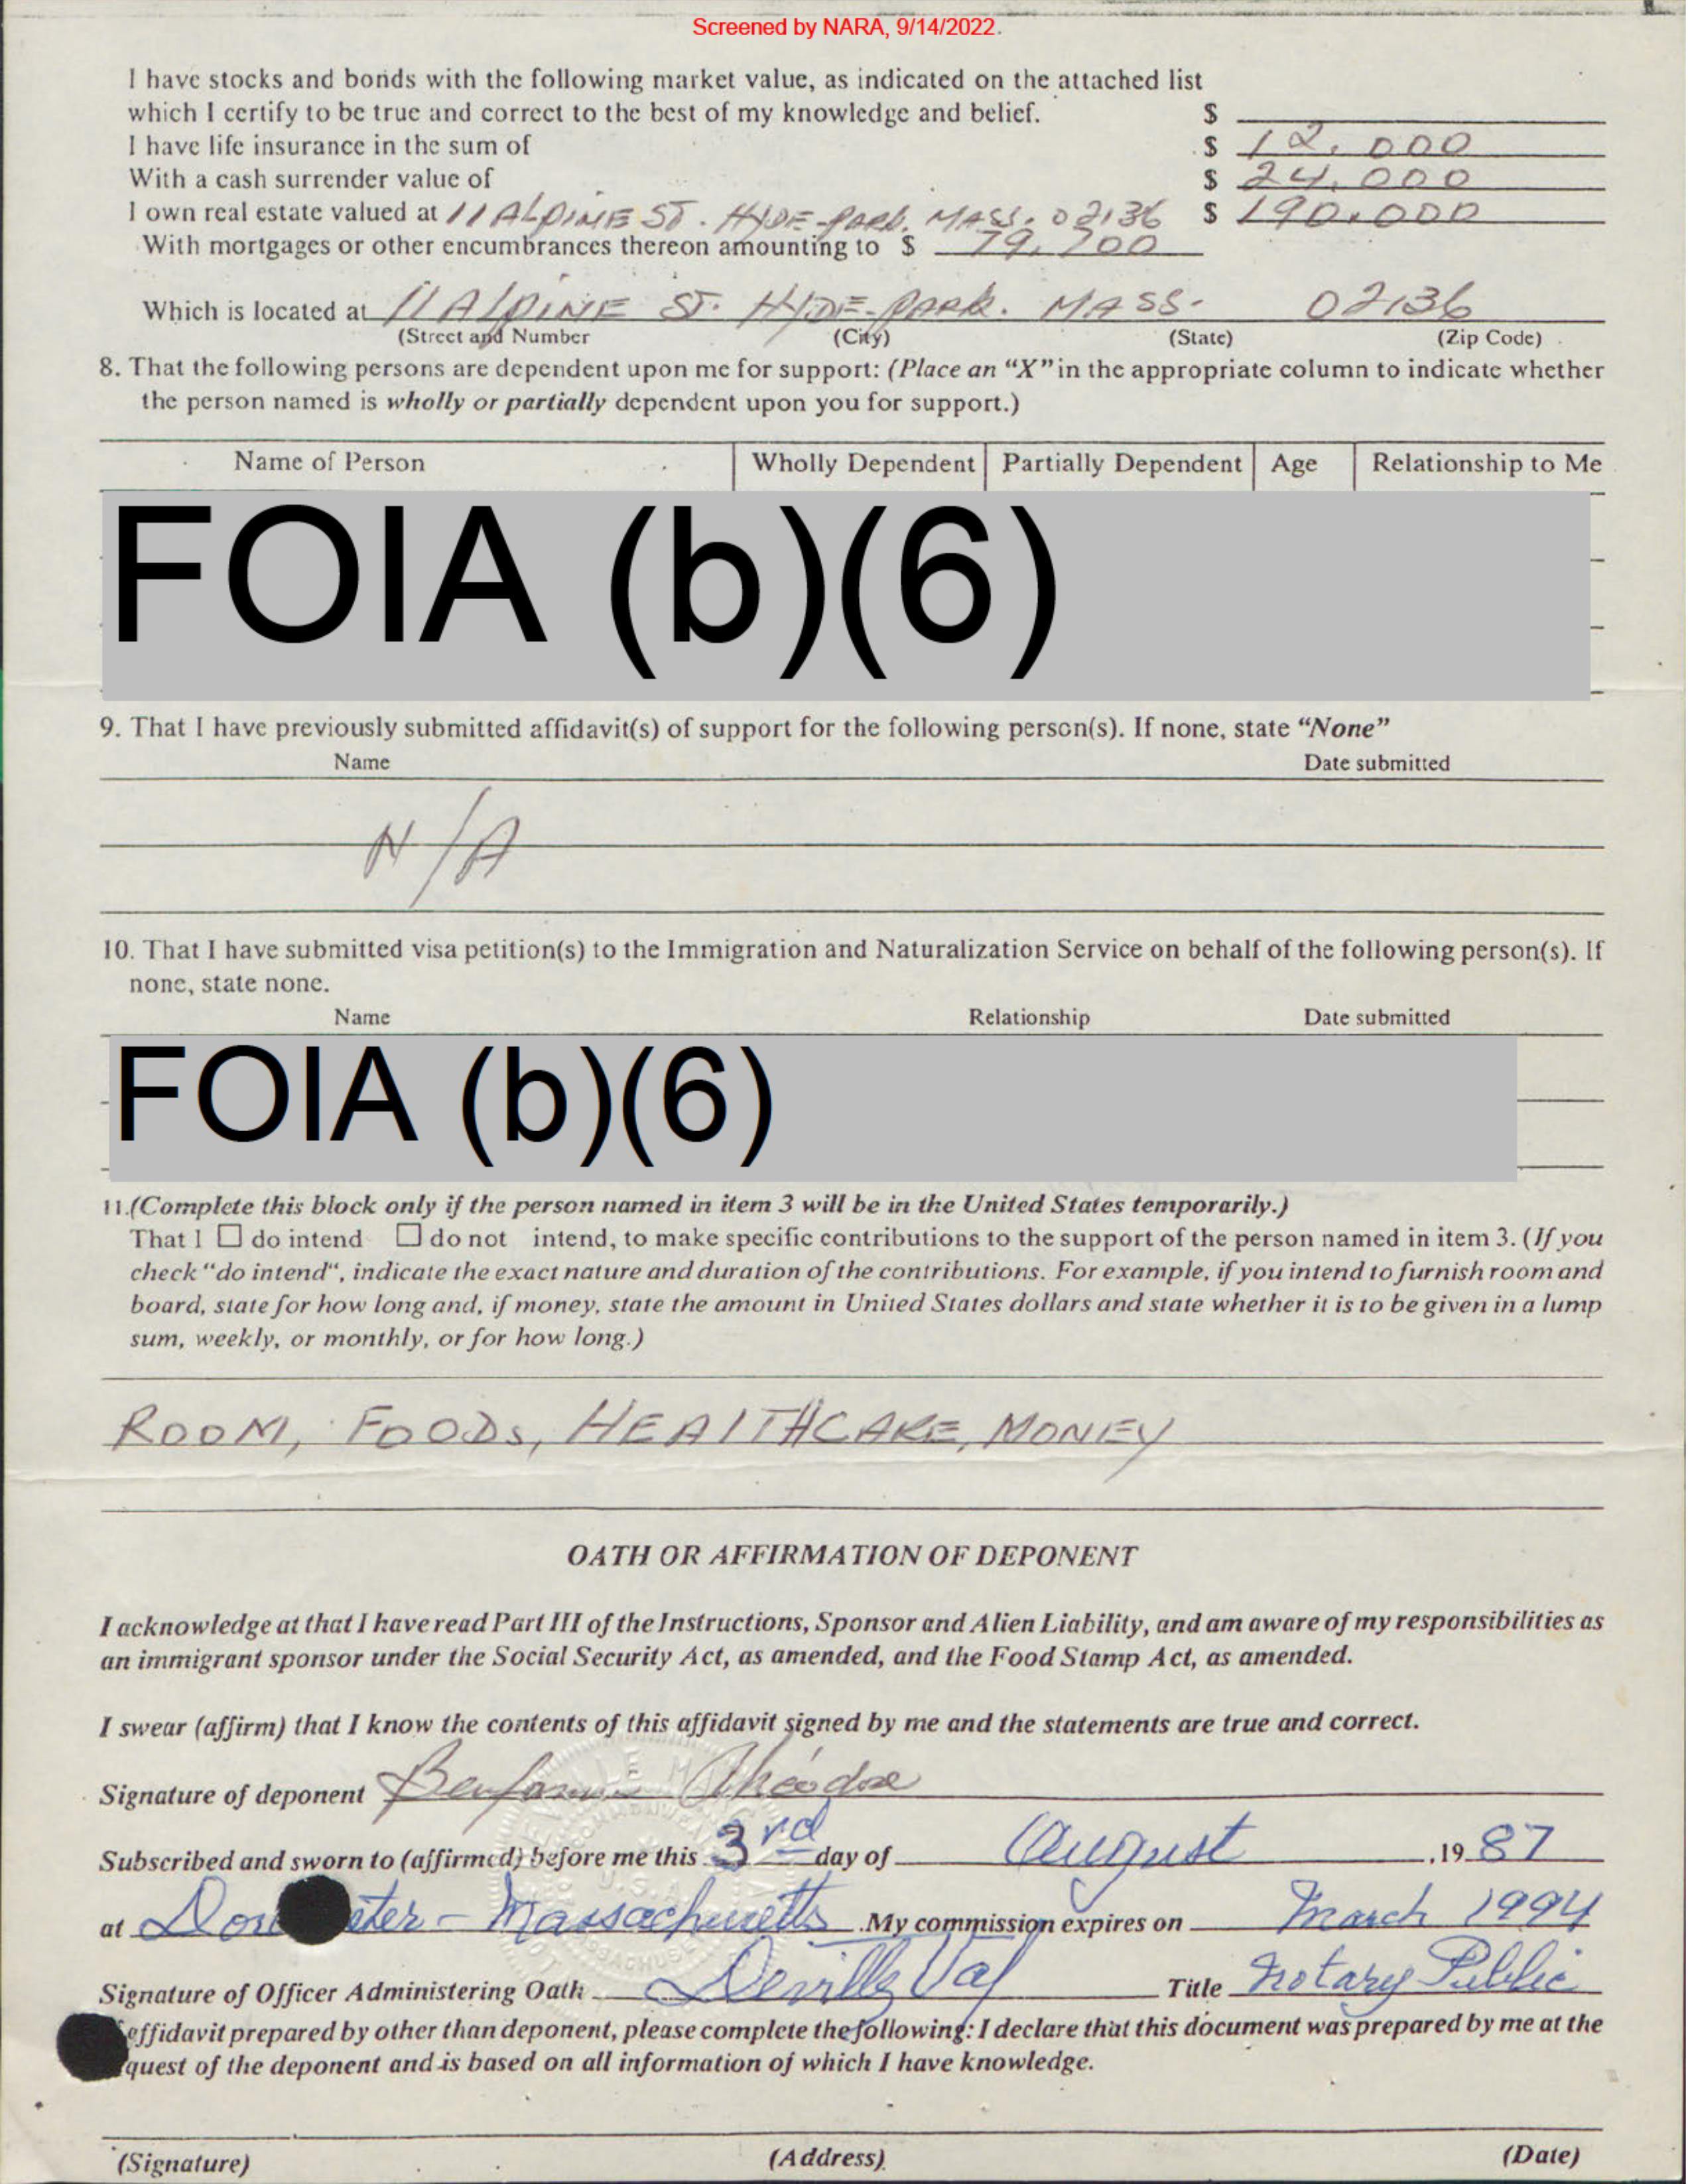 Screened by NARA, 9/14/2022.
I have stocks and bonds with the following market value, as indicated on the attached list
which I certify to be true and correct to the best of my knowledge and belief. $
I have life insurance in the sum of $ 12,000
With a cash surrender value of $ 24,000
I own real estate valued at 11 ALPINE ST. HYDE-PARK. MASS. 02136 $ 190,000
With mortgages or other encumbrances thereon amounting to $ 79,700
Which is located at 11 AlpINE ST. HYDE-PARK. MASS- 02136
(Street and Number (City) (State) (Zip Code)
8. That the following persons are dependent upon me for support: (Place an “X” in the appropriate column to indicate whether
the person named is wholly or partially dependent upon you for support.)
Name of Person Wholly Dependent Partially Dependent Age Relationship to Me
FOIA (b)(6)
9. That I have previously submitted affidavit(s) of support for the following person(s). If none, state “None”
Name Date submitted
N/A
10. That I have submitted visa petition(s) to the Immigration and Naturalization Service on behalf of the following person(s). If
none, state none.
Name Relationship Date submitted
FOIA (b)(6)
11.(Complete this block only if the person named in item 3 will be in the United States temporarily.)
That I ☐ do intend ☐ do not intend, to make specific contributions to the support of the person named in item 3. (If you
check “do intend“, indicate the exact nature and duration of the contributions. For example, if you intend to furnish room and
board, state for how long and, if money, state the amount in United States dollars and state whether it is to be given in a lump
sum, weekly, or monthly, or for how long.)
ROOM, FOODs, HEAlTHCARE, MONEY
OATH OR AFFIRMATION OF DEPONENT
I acknowledge at that I have read Part III of the Instructions, Sponsor and Alien Liability, and am aware of my responsibilities as
an immigrant sponsor under the Social Security Act, as amended, and the Food Stamp Act, as amended.
I swear (affirm) that I know the contents of this affidavit signed by me and the statements are true and correct.
Signature of deponent Benjamin Théodore
Subscribed and sworn to (affirmed) before me this 3rd day of August ,19 87
at Massachusetts .My commission expires on March 1994
Signature of Officer Administering Oath Title Notary Public
affidavit prepared by other than deponent, please complete the following: I declare that this document was prepared by me at the
quest of the deponent and is based on all information of which I have knowledge.
(Signature) (Address) (Date)